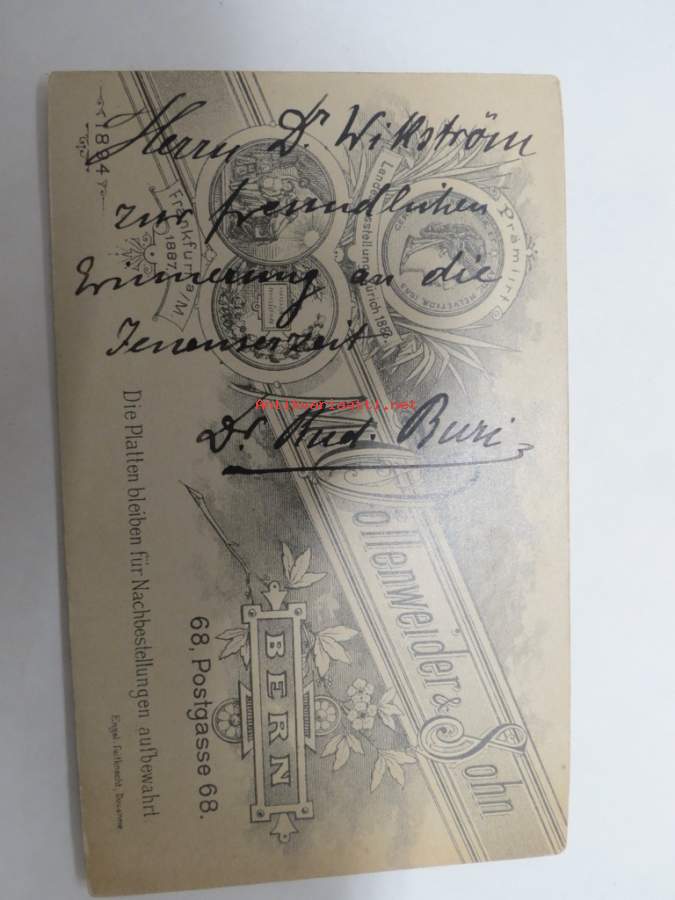 Herrn Dr Wikström
zur freundlichen
Erinnerung an die
Jenenserzeit
Dr. Rud. Buri
1894
Prämirt
Landesausstellung Zürich 1883.
HELVETIA 1883
Frankfurt a/M
1887.
Antikvariaatti.net
Vollenweider & Sohn
BERN
68, Postgasse 68.
Die Platten bleiben für Nachbestellungen aufbewahrt.